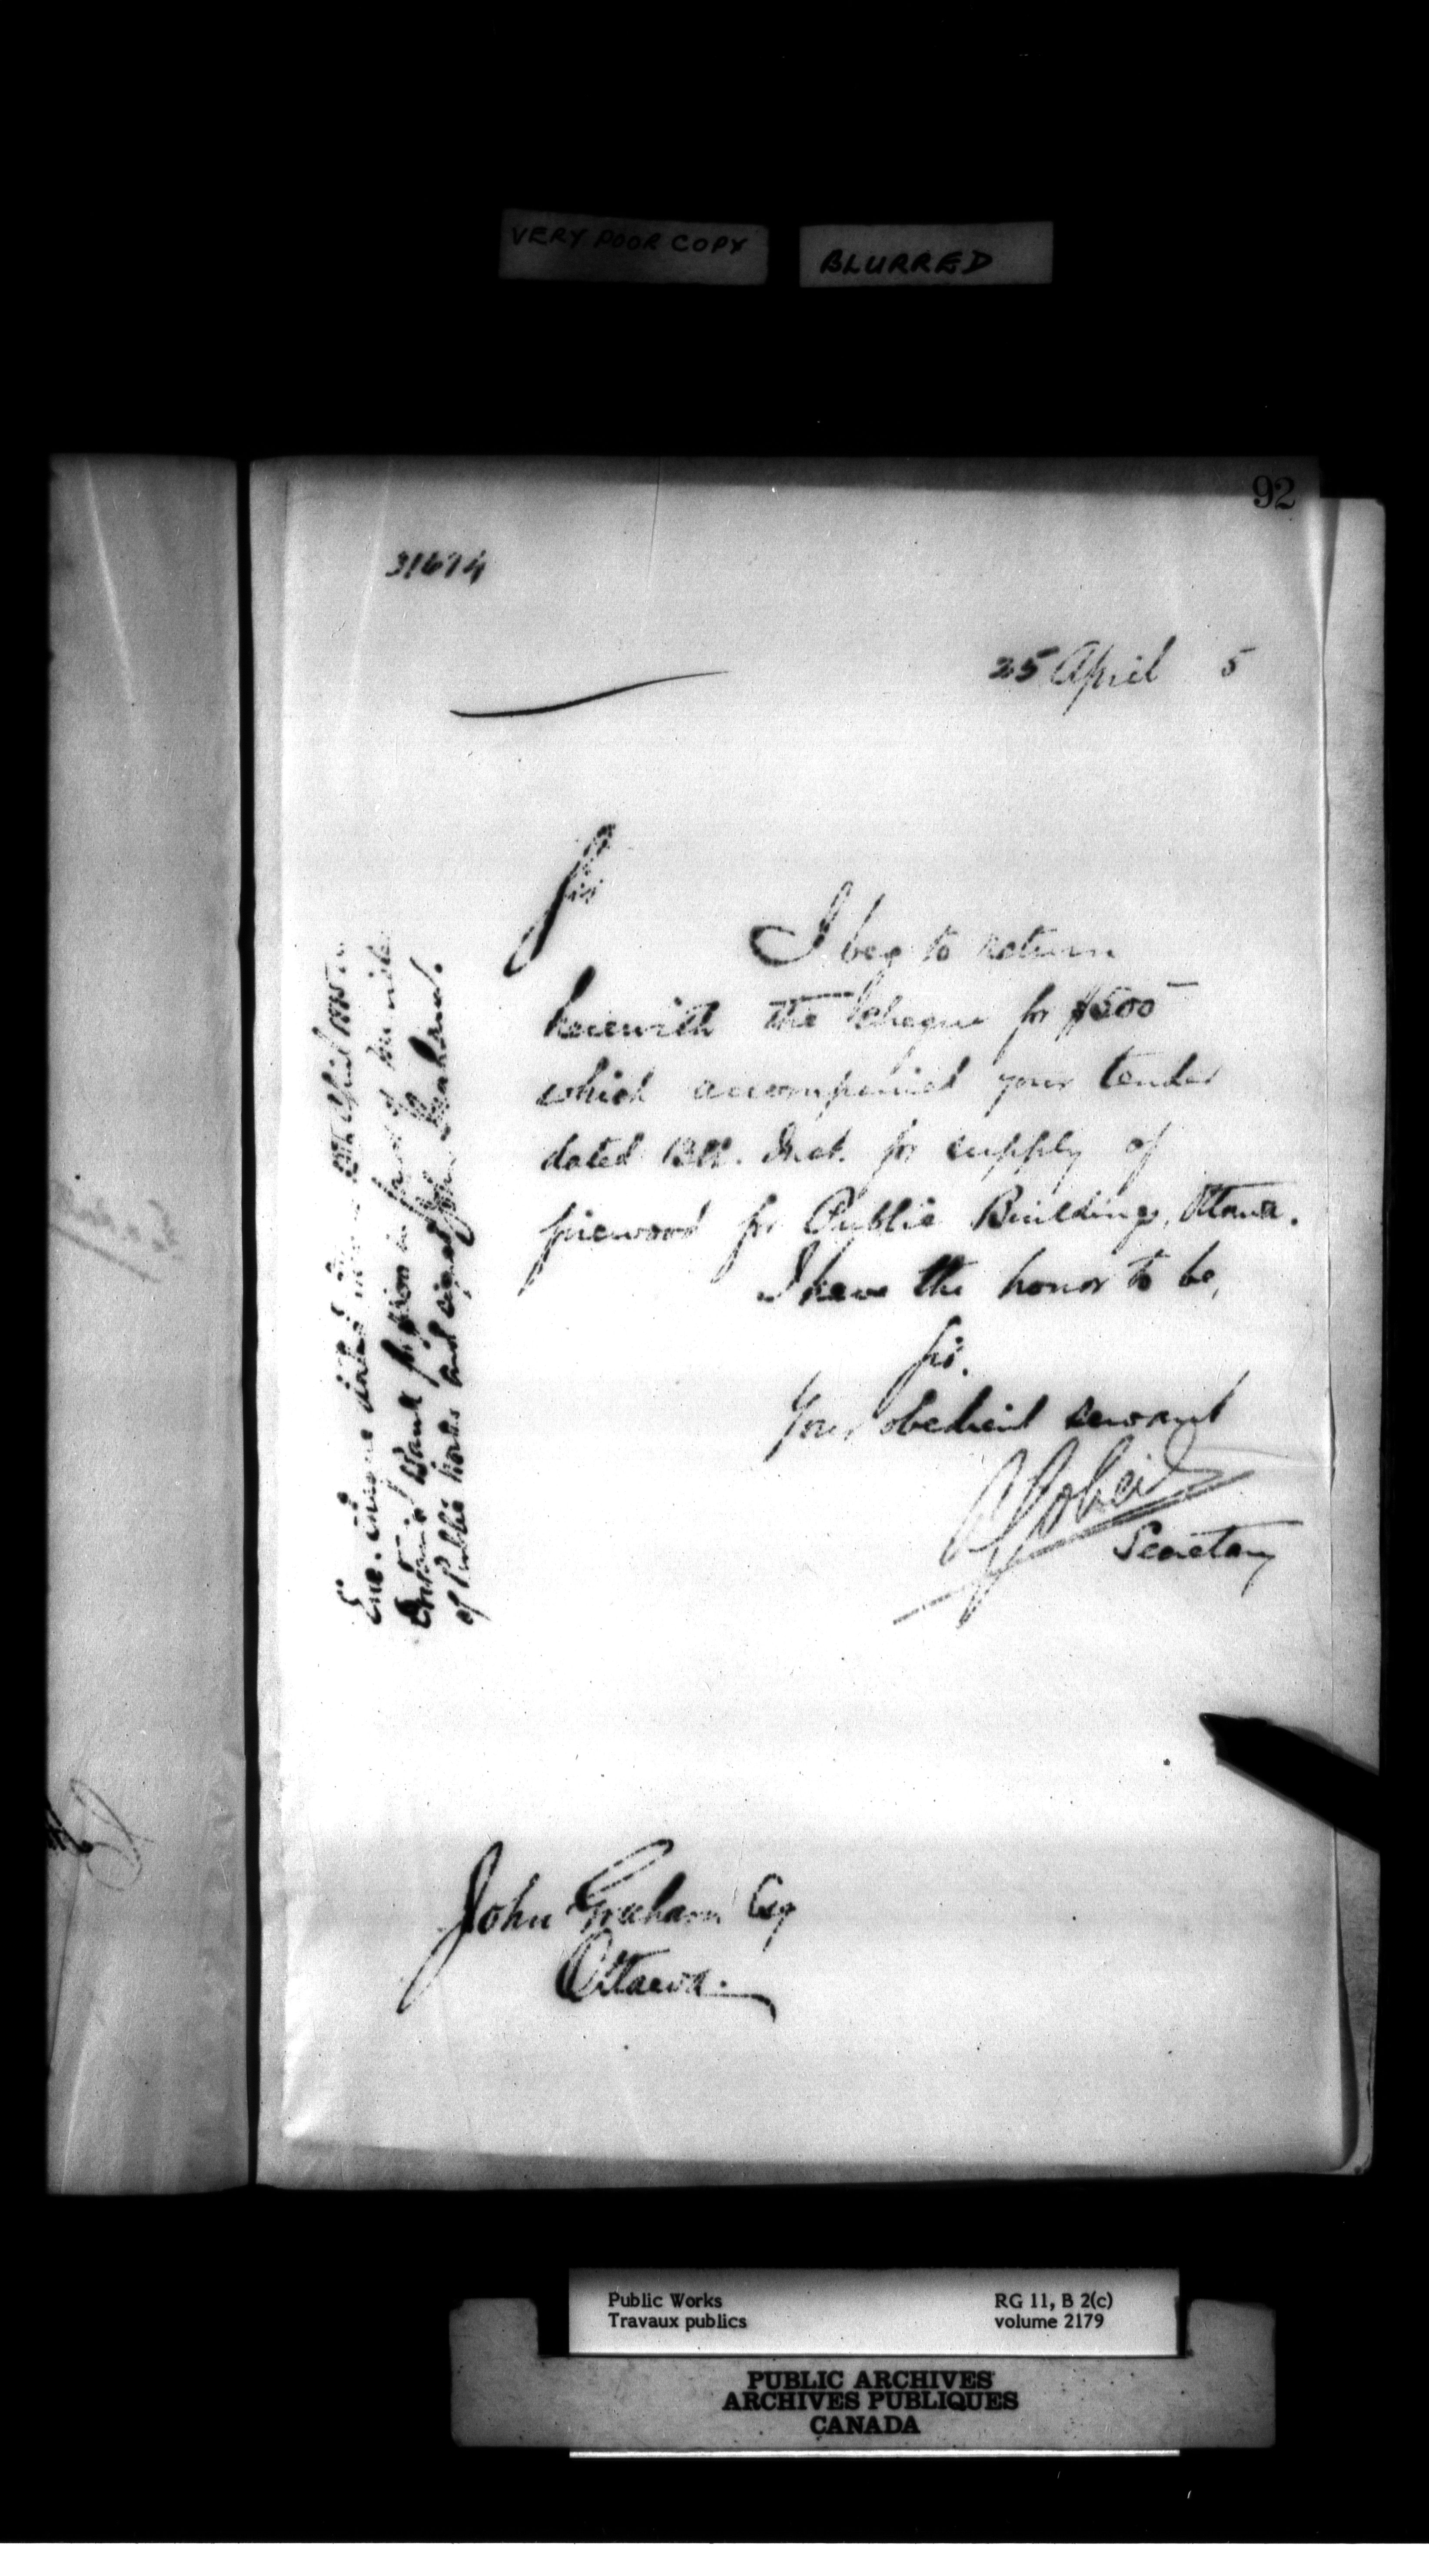 VERY POOR COPY
BLURRED
92
31674
25 April 5
Sir
I beg to return
herewith the cheque for $500
which accompanied your tender
dated 13th. Inst. for supply of
firewood for Public Buildings, Ottawa.
I have the honor to be,
Sir.
Your obedient servant
AGobeil
Secretary
Enc. cheque dated April 1895
Ontario Bank for $500 in favor of Minister
of Public Works and signed John Graham.
John Graham Esq
Ottawa.
Public Works
Travaux publics
RG 11, B 2(c)
volume 2179
PUBLIC ARCHIVES
ARCHIVES PUBLIQUES
CANADA